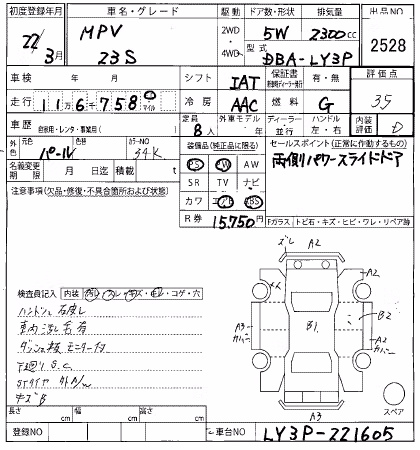 初度登録年月 車名・グレード 駆動 ドア数・形状 排気量 出品NO
22/3月 MPV 23S 2WD・4WD 5W 2300cc 2528
型式 DBA-LY3P
車検 年 月 シフト IAT 保証書 有・無 評価点
走行 116758 マイル 冷房 AAC 燃料 G 3.5
車歴 自家用・レンタ・事業用( ) 定員 8人 外車モデル 年 ディーラー・並行 ハンドル 左・右 内装 評価 D
外色 元色 パール 色替 カラーNO 34K
装備品(純正品に限る) セールスポイント(正常に作動するもの)
PS PW AW 両側パワースライドドア
名義変更期限 月 日迄 積載 t SR TV ナビ
注意事項(欠品・修復・不具合箇所および状態) カワ エアB ABS
R券 15.750円
Fガラス トビ石・キズ・ヒビ・ワレ・リペア跡
ズレ A2
A2
検査員記入 内装
コゲ・穴
メイ
B1
B2
A3
A2
ハンドル
車内
ダッシュ板 モニター
下廻り S.C
キズB
A3
スペア
長さ cm 幅 cm 高さ cm
登録NO 車台NO LY3P-221605